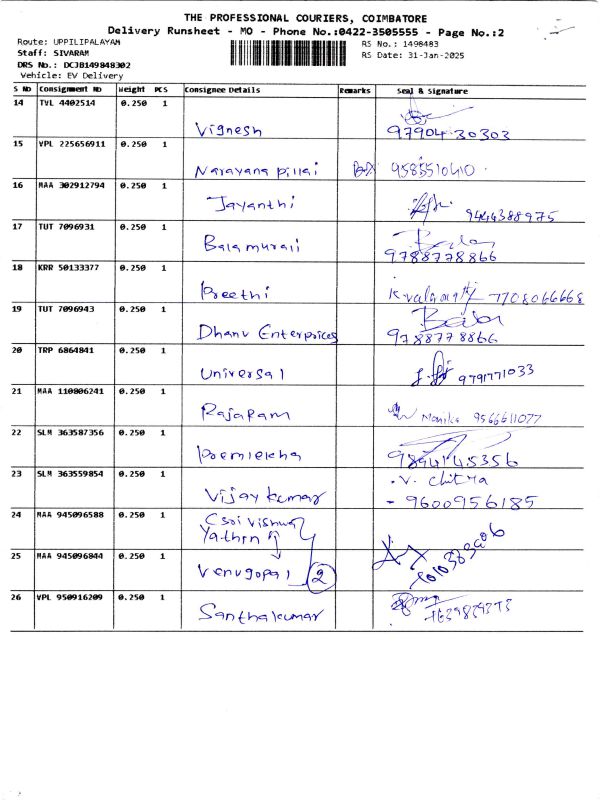 THE PROFESSIONAL COURIERS, COIMBATORE
Delivery Runsheet - MO - Phone No.:0422-3505555 - Page No.:2
Route: UPPILIPALAYAM
RS No.: 1498483
Staff: SIVARAM
RS Date: 31-Jan-2025
DRS No.: DCJB149848302
Vehicle: EV Delivery
S No Consignment No Weight PCS Consignee Details Remarks Seal & Signature
14 TVL 4402514 0.250 1
Vignesh 97904 30303
15 VPL 225656911 0.250 1
Narayana pillai 9585510410
16 MAA 302912794 0.250 1
Jayanthi 9444388975
17 TUT 7096931 0.250 1
Balamurali 9788778866
18 KRR 50133377 0.250 1
Preethi 7708066668
19 TUT 7096943 0.250 1
Dhanu Enterprices 9788778866
20 TRP 6864841 0.250 1
Universal 9791771033
21 MAA 110806241 0.250 1
Rajaram Monika 9566611077
22 SLM 363587356 0.250 1
Premlekha 9894145356
23 SLM 363559854 0.250 1
V. Chitra
Vijay kumar - 9600956185
24 MAA 945096588 0.250 1
Sri Vishnu
Yathra
25 MAA 945096844 0.250 1
Venugopal 2
26 VPL 950916209 0.250 1
Santhakumar